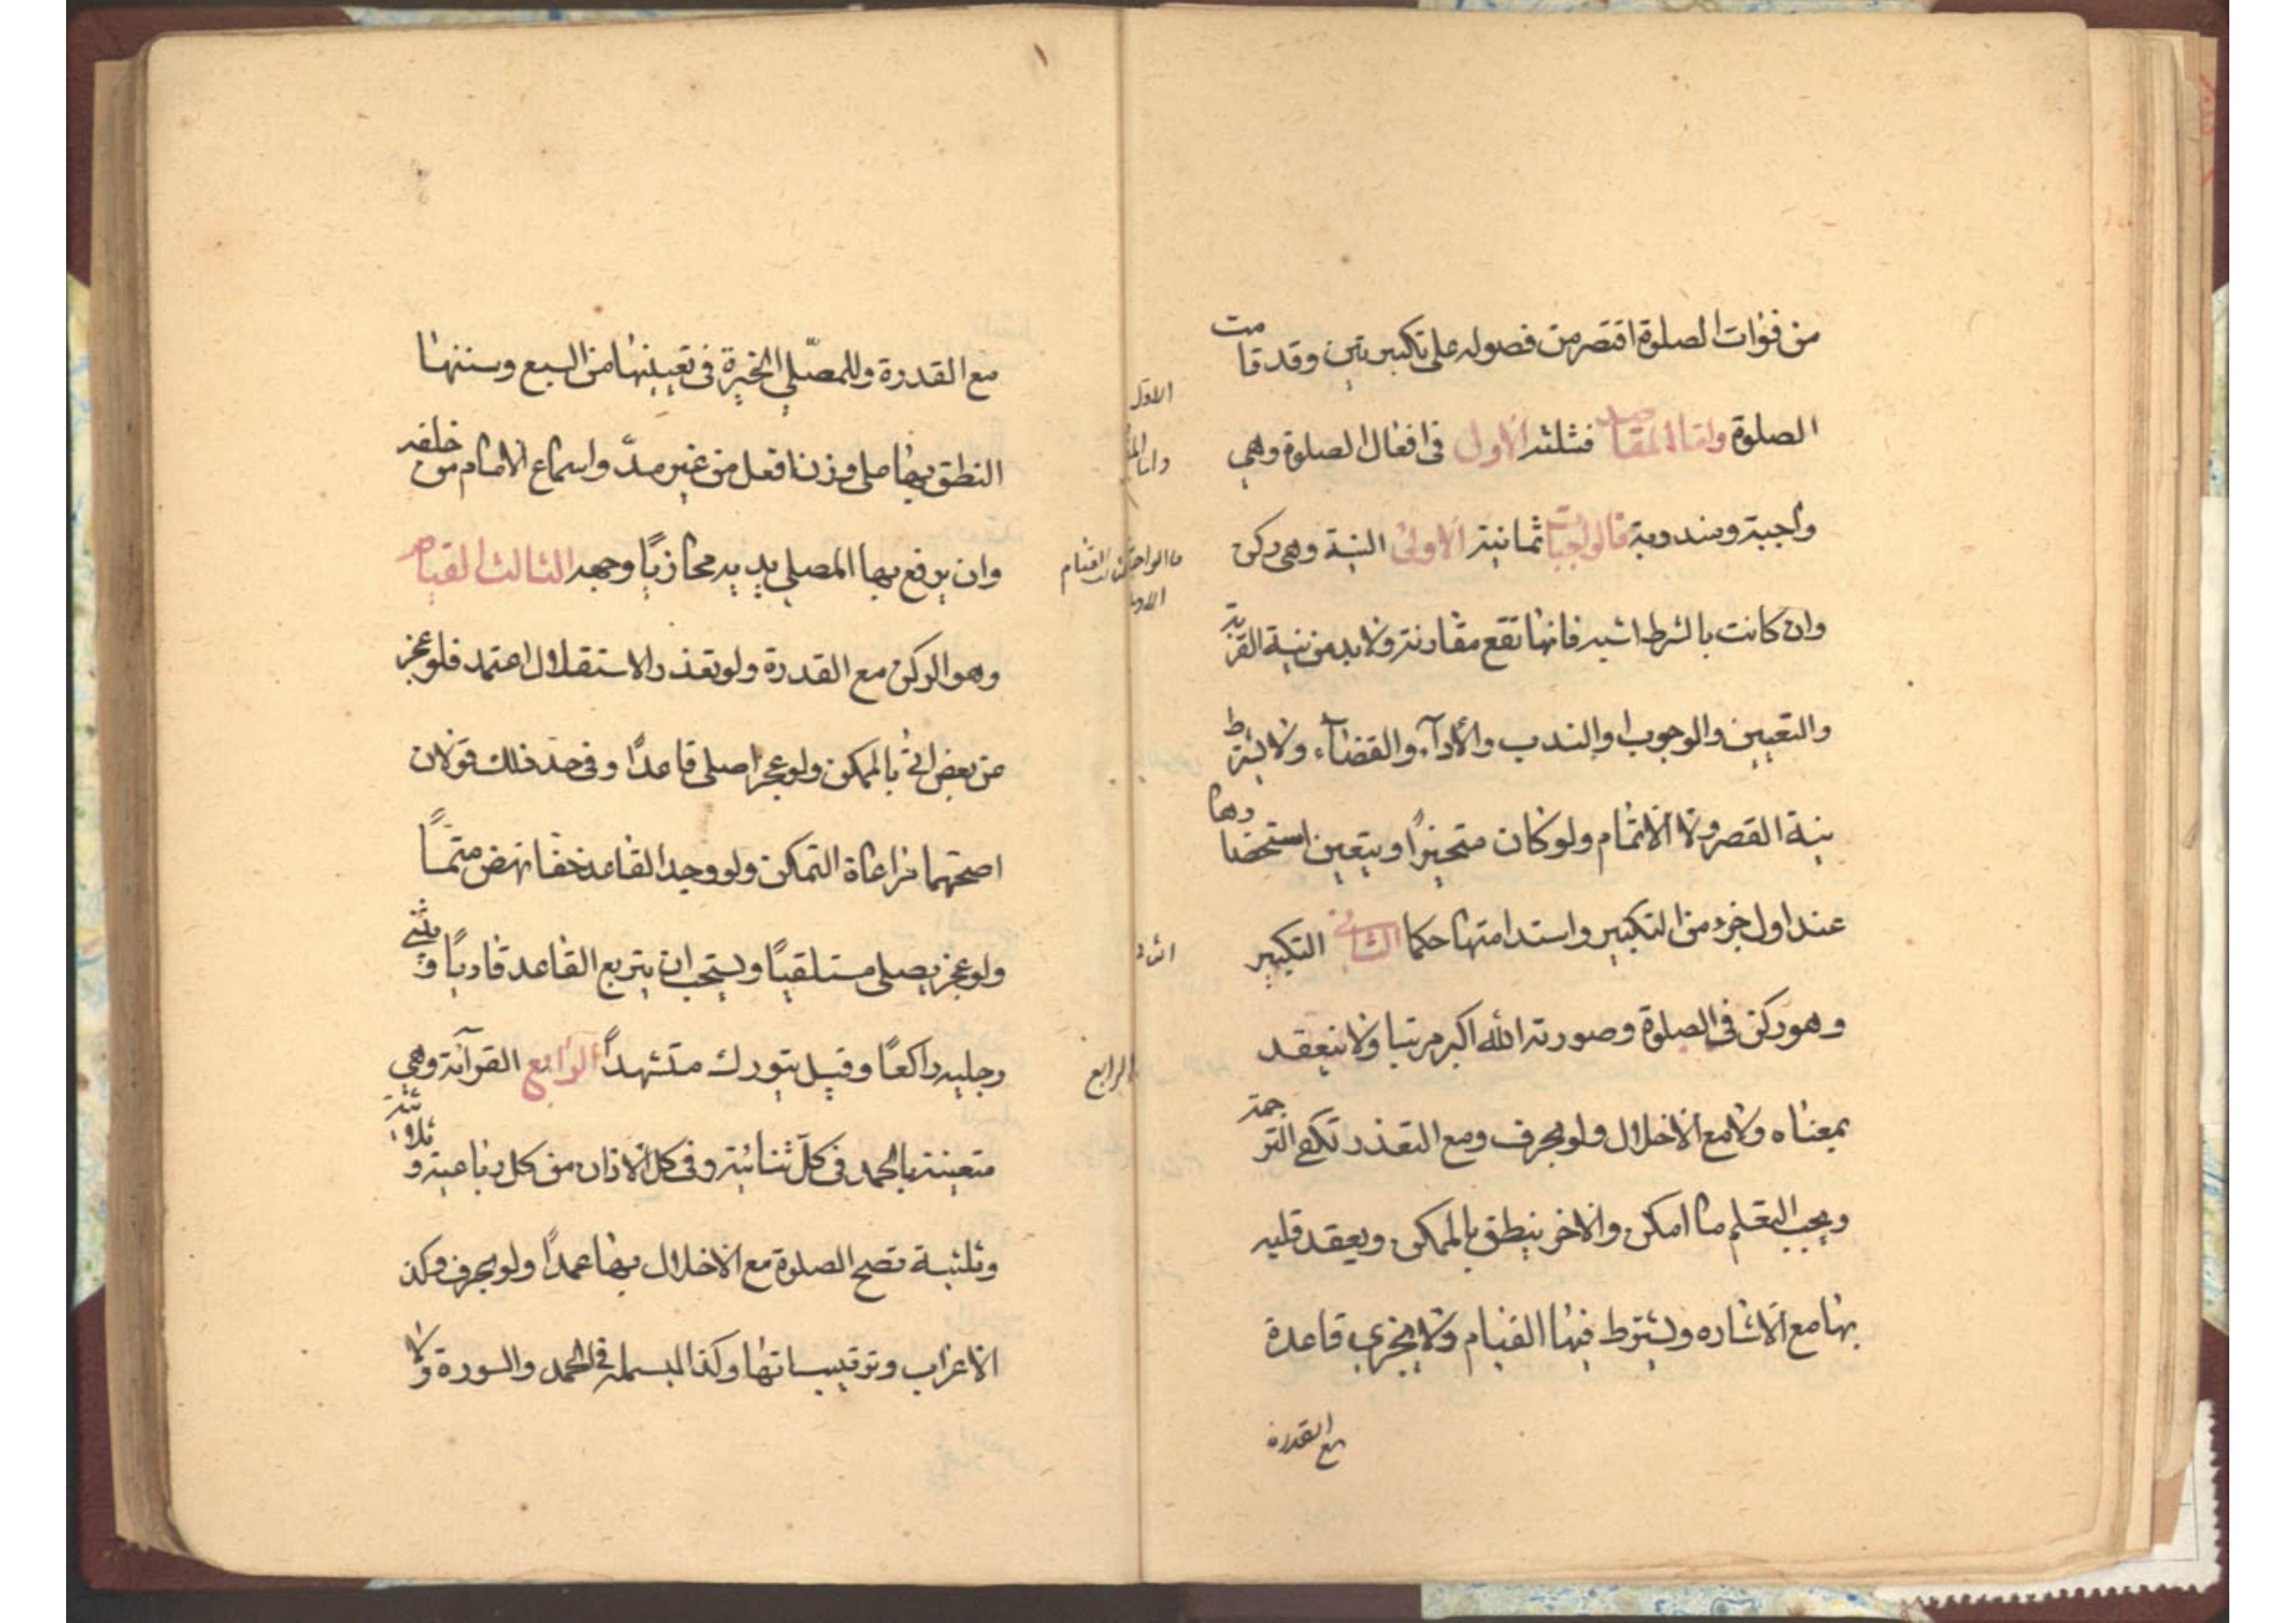 من فوات الصلوة اقتصر من فصوله على تكبيرتين وقد قامت
الصلوة واما المقاصد فثلثة الاول في افعال الصلوة وهي
واجبة ومندوبة فالواجبات ثمانية الاولى النية وهي ركن
وان كانت بالشرط اشبه فانها تقع مقارنة ولا بد من نية القربة
والتعيين والوجوب او الندب والأدآء والقضآء ولا يشترط
نية القصر ولا الاتمام ولو كان متخيرًا ويتعين استحضارها
عند اول جزء من التكبير واستدامتها حكما الثاني التكبير
وهو ركن في الصلوة وصورته الله اكبر مرتبا ولا ينعقد
بمعناه ولا مع الاخلال ولو بحرف ومع التعذر تكفي الترجمة
ويجب التعلم ما امكن والاخرس ينطق بالممكن ويعقد قلبه
بها مع الاشاره ويشترط فيها القيام ولا يجزي قاعدة
مع القدرة
الاول
واما
الرابع
مع القدرة وللمصلّي الخيرة في تعيينها من السبع وسننها
النطق بها على وزن افعل من غير مدّ واسماع الامام من خلفه
وان يرفع بها المصلي يديه محاذيًا وجهه الثالث القيام
وهو الركن مع القدرة ولو تعذر الاستقلال اعتمد فلو عجز
عن بعض اتى بالممكن ولو عجز اصلى قاعدًا وفي حد ذلك قولان
اصحهما مراعاة التمكن ولو وجد القاعد خفا نهض متمًا
ولو عجز يصلى مستلقيًا ويستحب ان يتربع القاعد قاريًا ويثني
رجليه راكعًا وقيل يتورك متشهدًا الرابع القرآئة وهي
متعينة بالحمد في كلّ ثنائية وفي كل الاولان من كل رباعية و
وثلثية تصح الصلوة مع الاخلال بها عمدًا ولو بحرف وكذ
الاعراب وترتيب اياتها وكذا البسملة في الحمد والسورة ولا